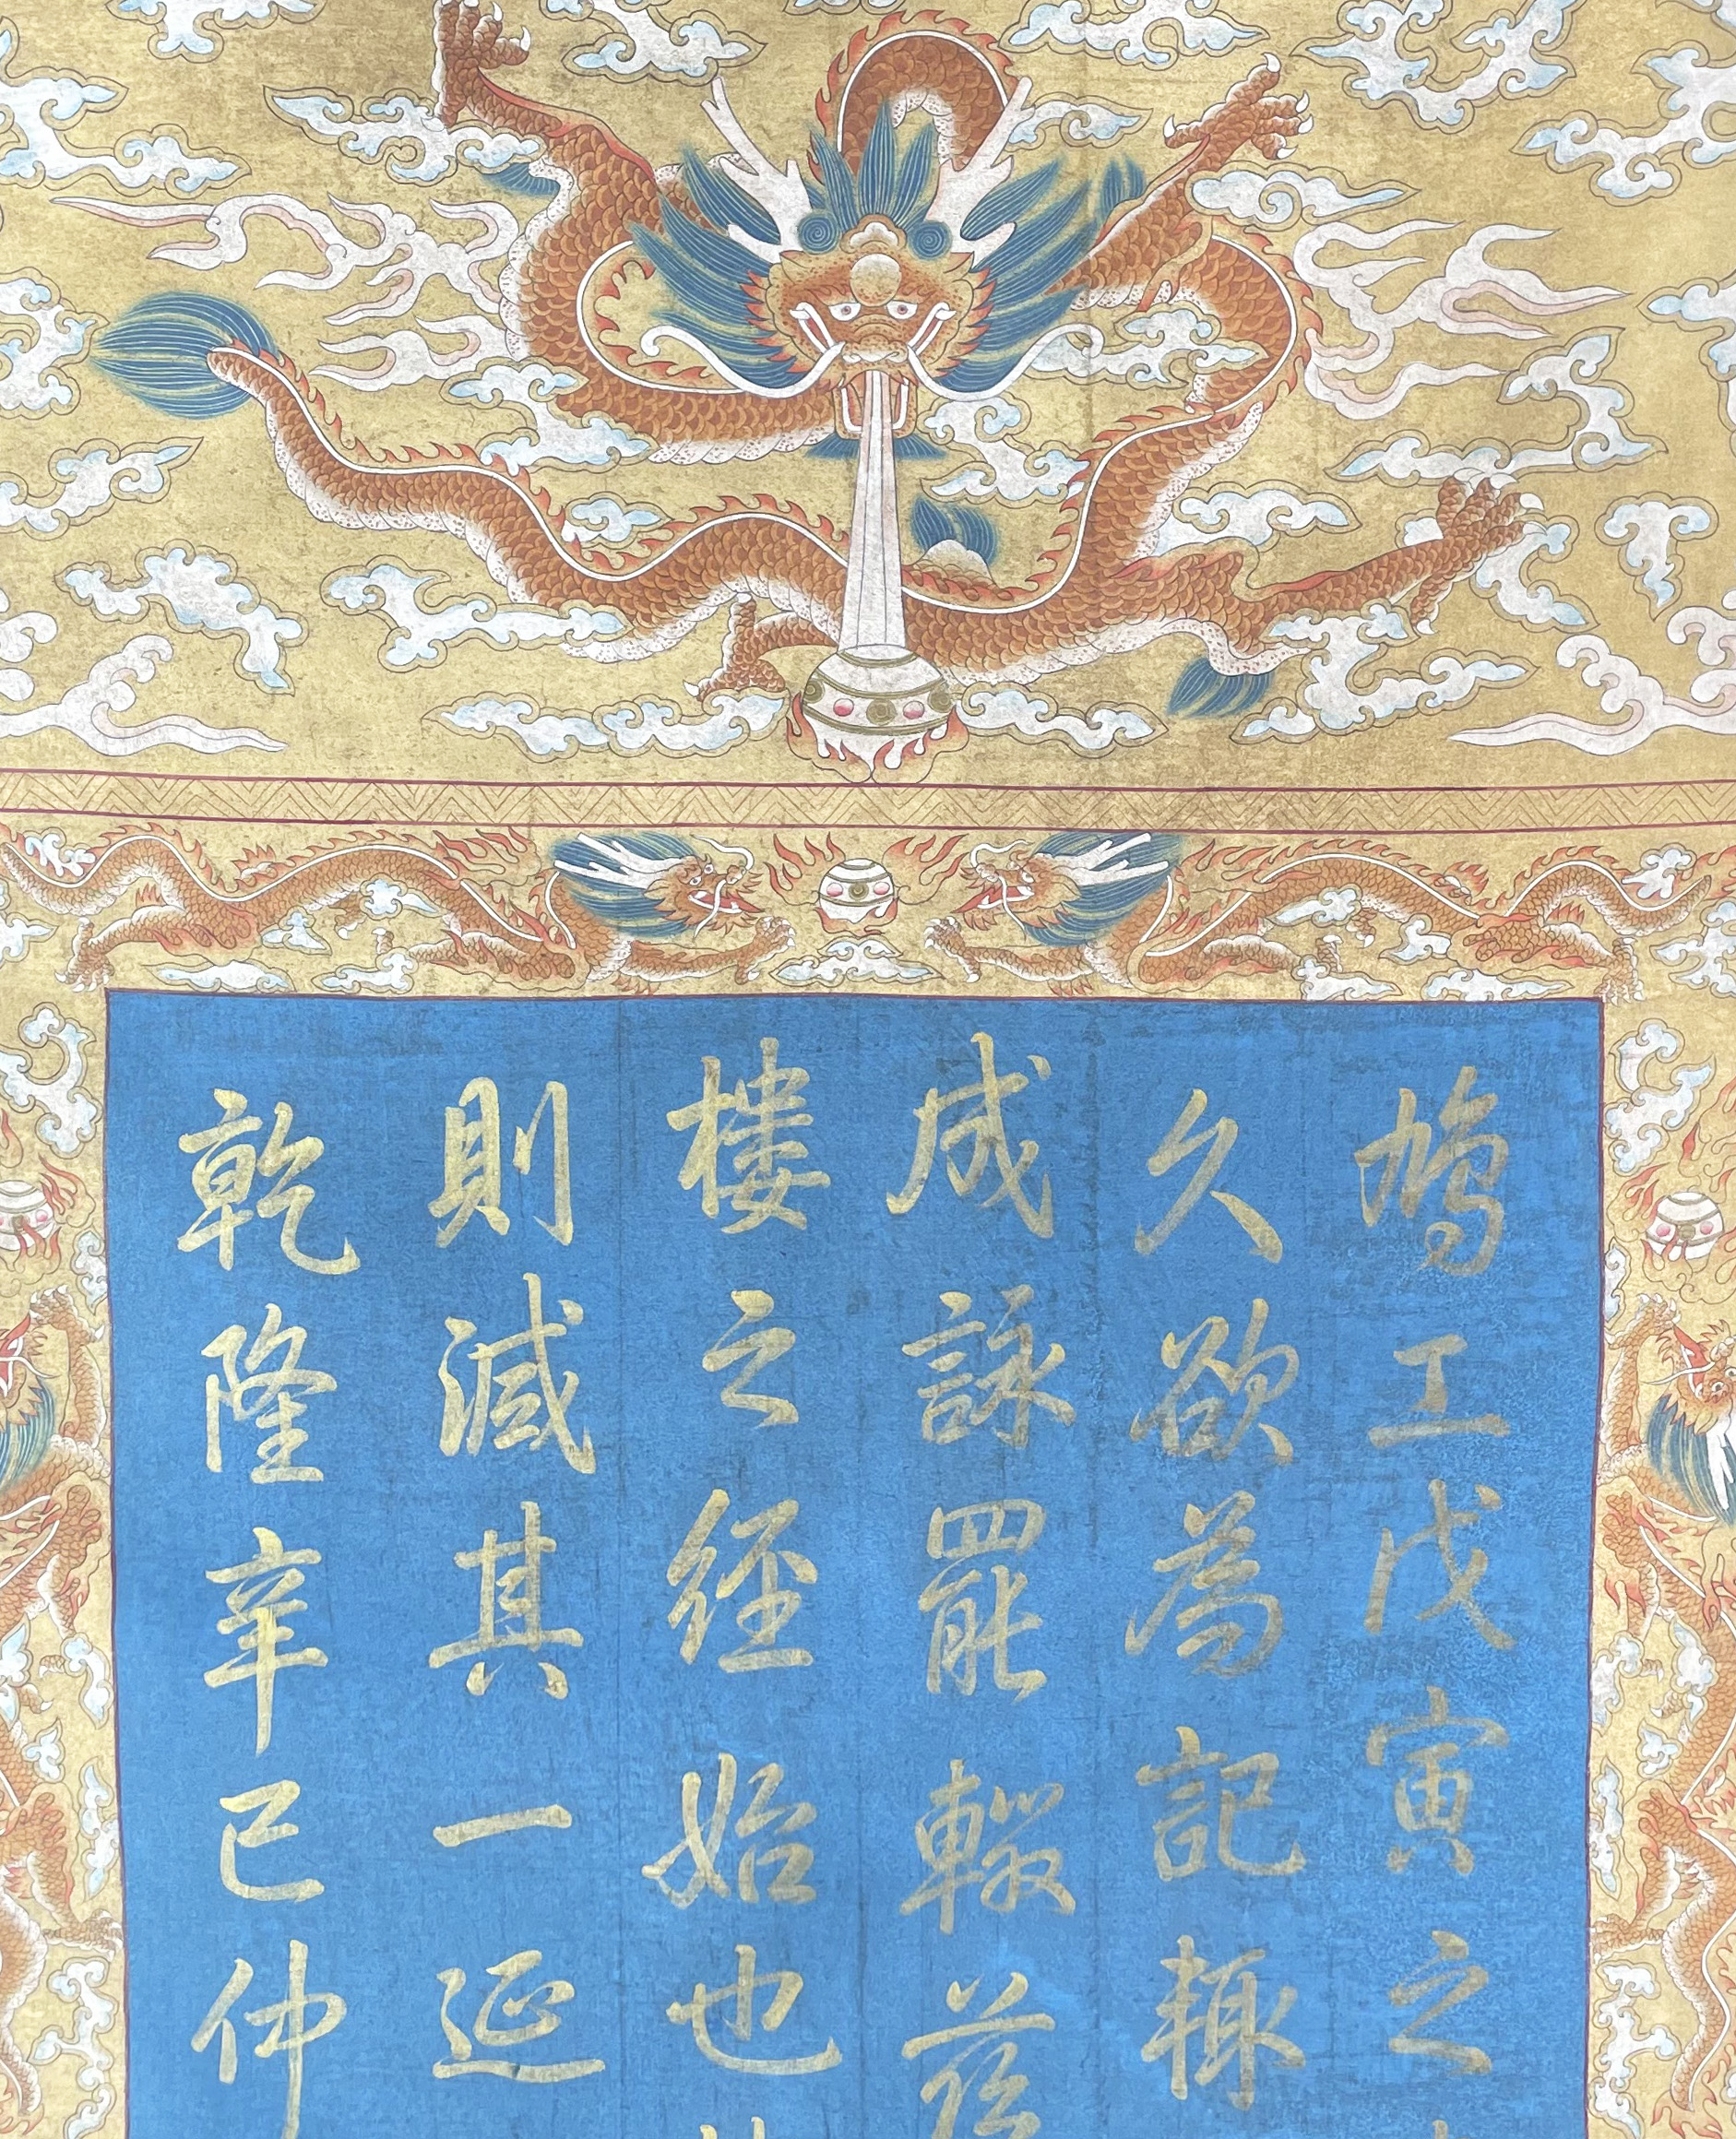 鳩工戊寅之
久欲為記輙
成詠罷輟茲
樓之經始也
則減其一延
乾隆辛巳仲